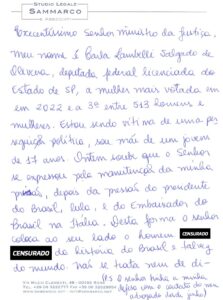 STUDIO LEGALE
SAMMARCO
Excelentíssimo Senhor Ministro da Justiça,
Meu nome é Carla Zambelli Salgado de
Oliveira, deputada federal licenciada do
Estado de SP, a mulher mais votada em
em 2022 e a 3ª entre 513 homens e
mulheres. Estou sendo vítima de uma per
seguição política, sou mãe de um jovem
de 17 anos. Ontem soube que o Senhor
se expressou pela manutenção da minha
prisão, depois da pressão do presidente
do Brasil, Lula, e do Embaixador do
Brasil na Itália. Desta forma o senhor
coloca ao seu lado o homem
CENSURADO da história do Brasil e talvez
do mundo. Não se trata nem de di-
CENSURADO
PS: O senhor tinha a minha
defesa com o cartão do meu
advogado desta junta
VIA MUZIO CLEMENTI, 48 - 00193 ROMA